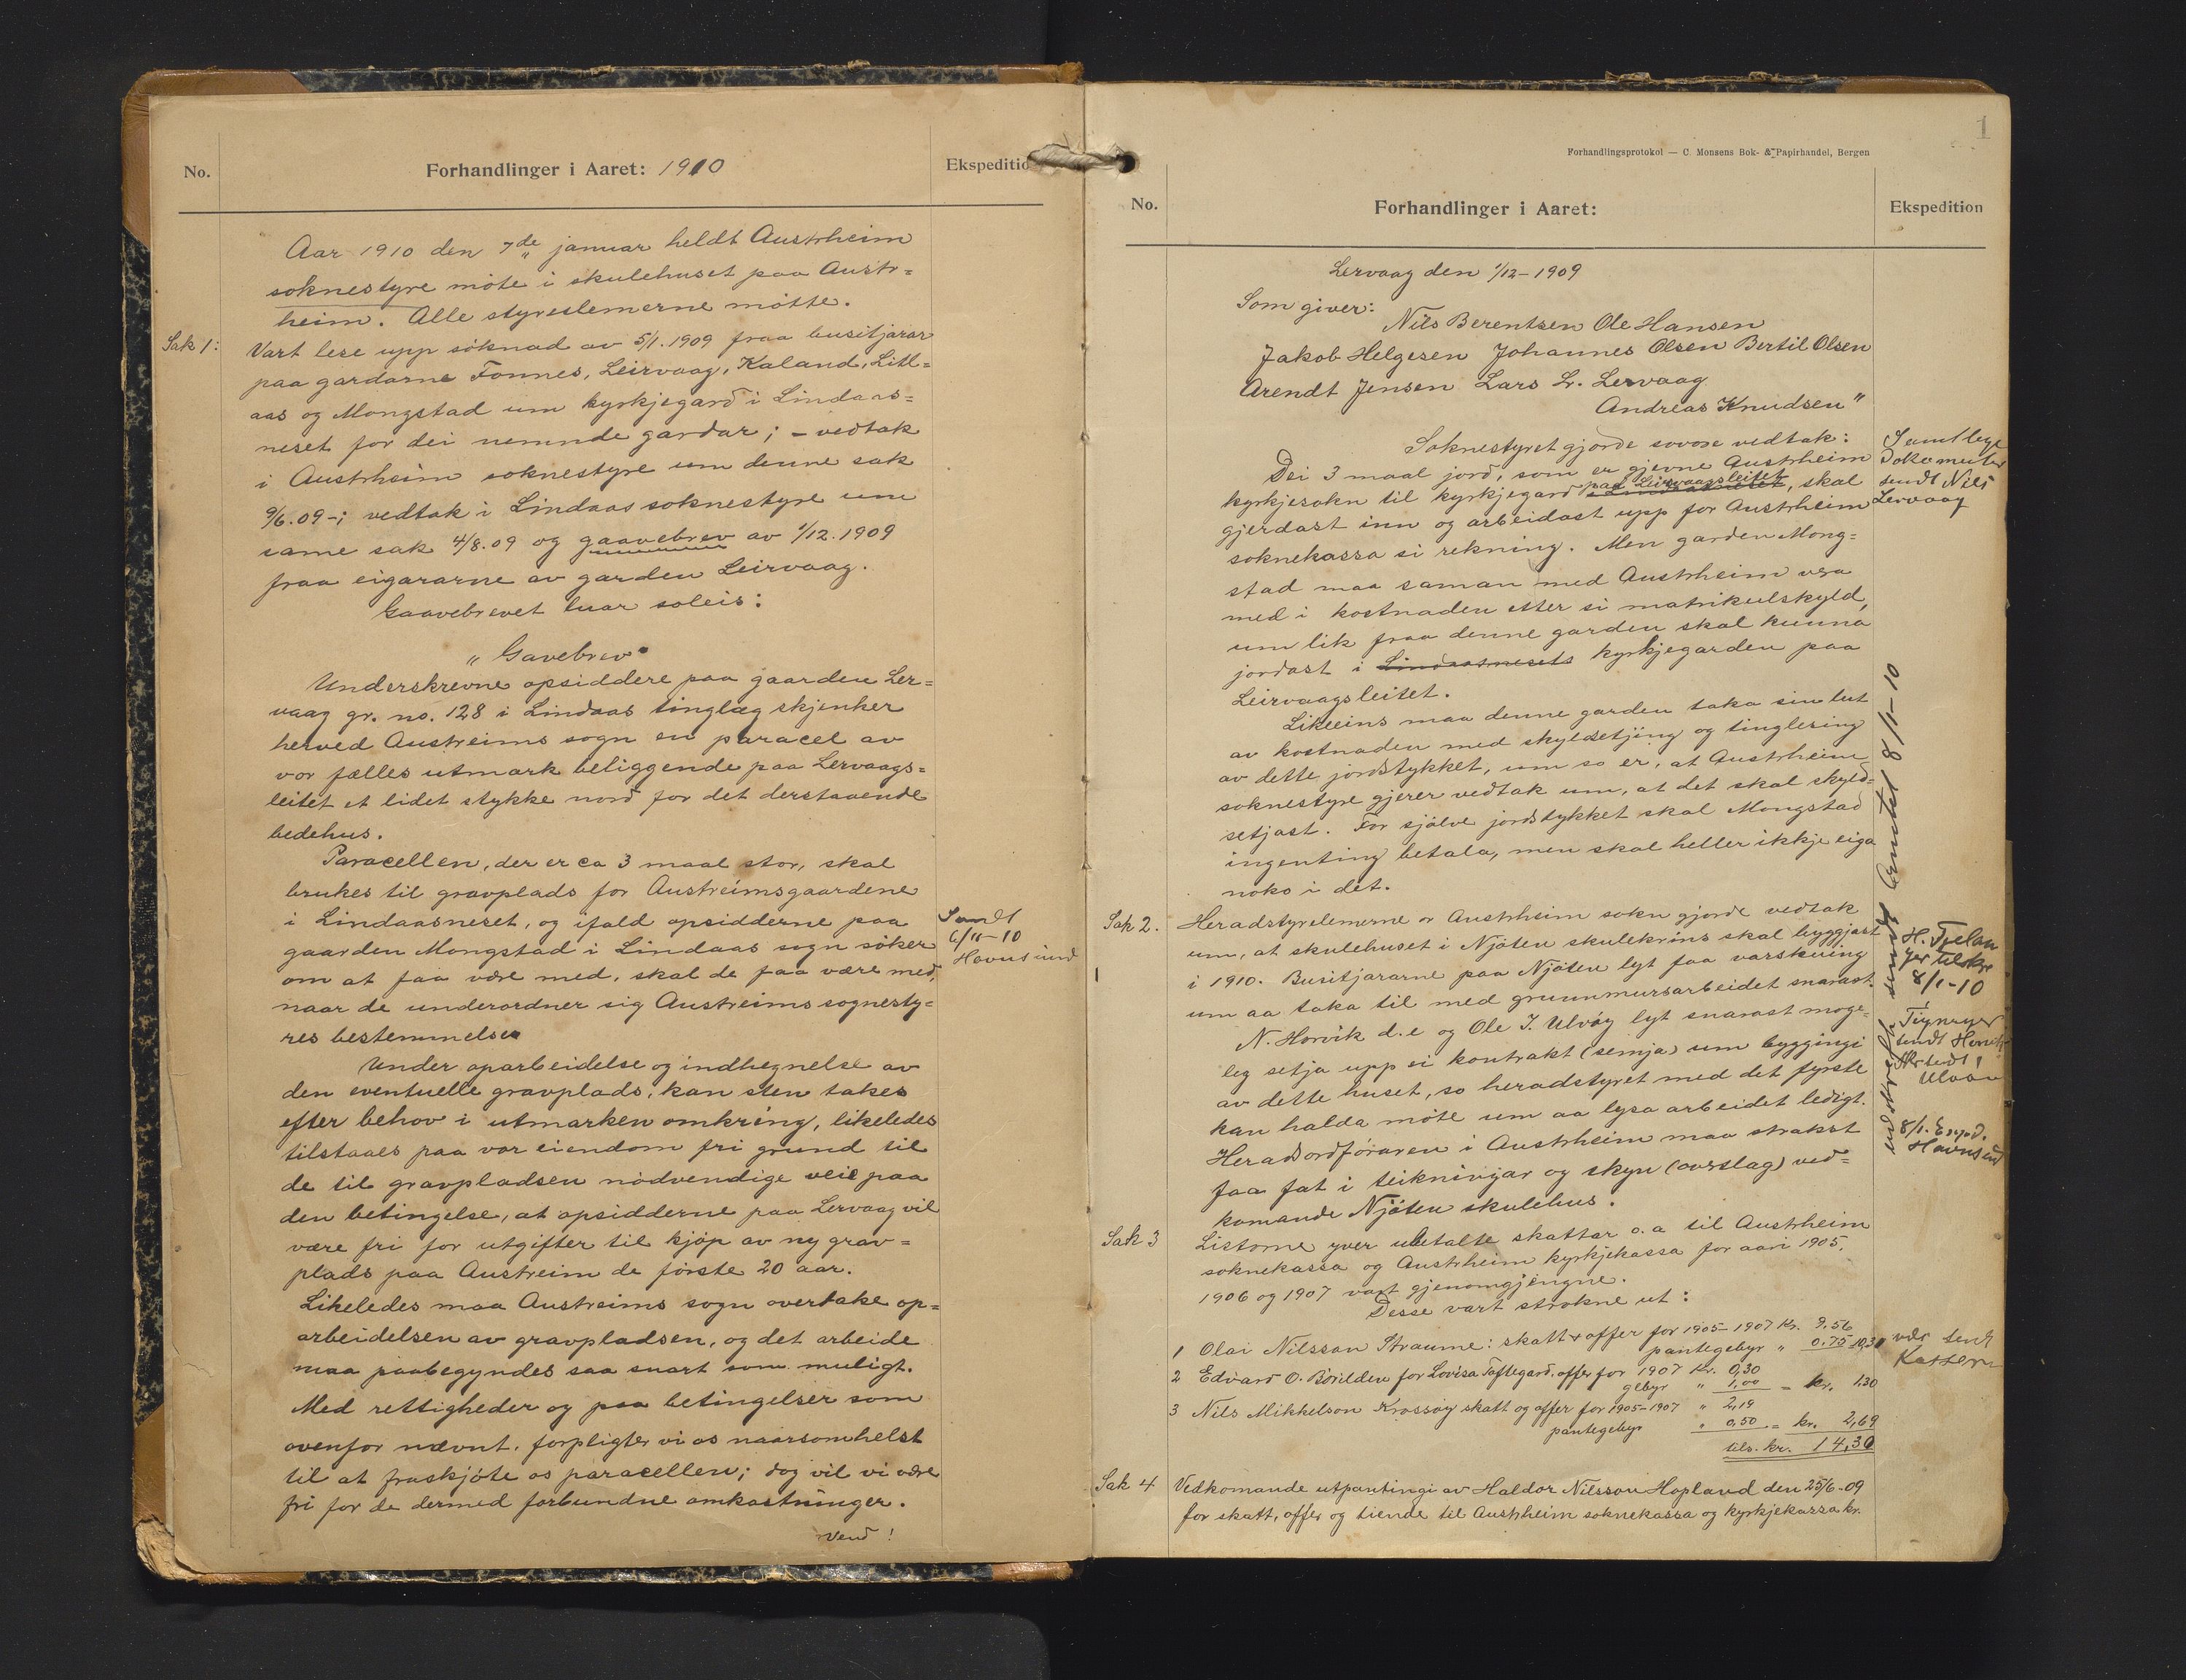 No.
Forhandlinger i Aaret: 1910
Ekspeditio
Aar 1910 den 7de januar heldt Austrheim
soknestyre möte i skulehuset paa Austr=
heim. Alle styreslemerne mötte.
Sak 1:
Vart lese upp söknad av 5/1.1909 fraa busitjarar
paa gardarne Fonnes, Leirvaag, Kaland, Litl=
aas og Mongstad um kyrkjegard i Lindaas=
neset for dei nemnde gardar; – vedtak
i Austrheim soknestyre um denne sak
9/6.09 –; vedtak i Lindaas soknestyre um
same sak 4/8.09 og gaavebrev av 1/12.1909
fraa eigararne av garden Leirvaag.
Gaavebrevet luar soleis:
„Gavebrev"
Underskrevne opsiddere paa gaarden Ler=
vaag gr. no. 128 i Lindaas tinglag skjenker
herved Austreims sogn en paracel av
vor fælles utmark beliggende paa Lervaags=
leitet et lidet stykke nord for det derstaaende
bedehus.
Paracellen, der er ca 3 maal stor, skal
brukes til gravplads for Austreimsgaardene
i Lindaasneset, og ifald opsidderne paa
gaarden Mongstad i Lindaas sogn söker
om at faa være med, skal de faa være med,
naar de underordner sig Austreims sognesty=
res bestemmelse
Sendt
6/11–10
Hovusund
Under oparbeidelse og indhegnelse av
den eventuelle gravplads, kan sten takes
efter behov i utmarken omkring, likeledes
tilstaaes paa vor eiendom fri grund til
de til gravpladsen nödvendige veie paa
den betingelse, at opsidderne paa Lervaag vil
være fri for utgifter til kjöp av ny grav=
plads paa Austreim de förste 20 aar.
Likeledes maa Austreims sogn overtake op=
arbeidelsen av gravpladsen, og det arbeide
maa paabegyndes saa snart som muligt.
Med rettigheder og paa betingelser som
ovenfor nævnt, forpligter vi os naarsomhelst
til at fraskjöte os paracellen; dog vil vi være
fri for de dermed forbundne omkostninger.
Vend!
1
Forhandlingsprotokol — C. Monsens Bok- & Papirhandel, Bergen
No.
Forhandlinger i Aaret:
Ekspedition
Lervaag den 1/12–1909
Som giver:
Nils Berentsen Ole Hansen
Jakob Helgesen Johannes Olsen Bertil Olsen
Arendt Jensen Lars L. Lervaag
Andreas Knudsen"
Soknestyret gjorde sovore vedtak:
Dei 3 maal jord, som er gjevne Austrheim
kyrkjesokn til kyrkjegard paa Leirvaagsleitet, skal
gjerdast inn og arbeidast upp for Austrheim
soknekassa si rekning. Men garden Mong=
stad maa saman med Austrheim vera
med i kostnaden etter si matrikulskyld,
um lik fraa denne garden skal kunna
jordast i Lindaasnesets kyrkjegarden paa
Leirvaagsleitet.
Samtlege
dokumenter
sendt Nils
Lervaag
Likeeins maa denne garden taka sin lut
av kostnaden med skyldsetjing og tinglesing
av dette jordstykket, um so er, at Austrheim
soknestyre gjerer vedtak um, at det skal skyld=
setjast. For sjölve jordstykket skal Mongstad
ingenting betala, men skal heller ikkje eiga
noko i det.
Sak 2.
Heradstyrelemerne or Austrheim sokn gjorde vedtak
um, at skulehuset i Njöten skulekrins skal byggjast
i 1910. Busitjararne paa Njöten lyt faa varskuing
um aa taka til med grunnmursarbeidet snarast.
N. Horvik d.e og Ole J. Ulvöy lyt snarast moge=
leg setja upp ei kontrakt (semja) um byggingi
av dette huset, so heradstyret med det fyrste
kan halda möte um aa lysa arbeidet ledigt.
Heradsordföraren i Austrheim maa strakst
faa fat i teikningar og skyn (overslag) ved=
komande Njöten skulehus.
8/11–10
8/1–10
8/1. Exp.
Sak 3
Listorne yver ubetalte skattar o.a til Austrheim
soknekassa og Austrheim kyrkjekassa for aari 1905,
1906 og 1907 vart gjenomgjengne.
Desse vart strokne ut:
1 Olai Nilsson Straume: skatt & offer for 1905–1907 Kr. 9.56
pantegebyr „ 0.75 10,31
2 Edvard O. Börilden for Lovisa Toftegard, offer for 1907 Kr. 0,30
gebyr „ 1,00 = kr. 1,30
3 Nils Mikkelson Krossöy skatt og offer for 1905–1907 „ 2,19
pantegebyr „ 0,50 = kr. 2,69
tils. kr. 14,30
Sak 4
Vedkomande utpantingi av Haldor Nilsson Hopland den 25/6–09
for skatt, offer og tiende til Austrheim soknekassa og kyrkjekassa kr.